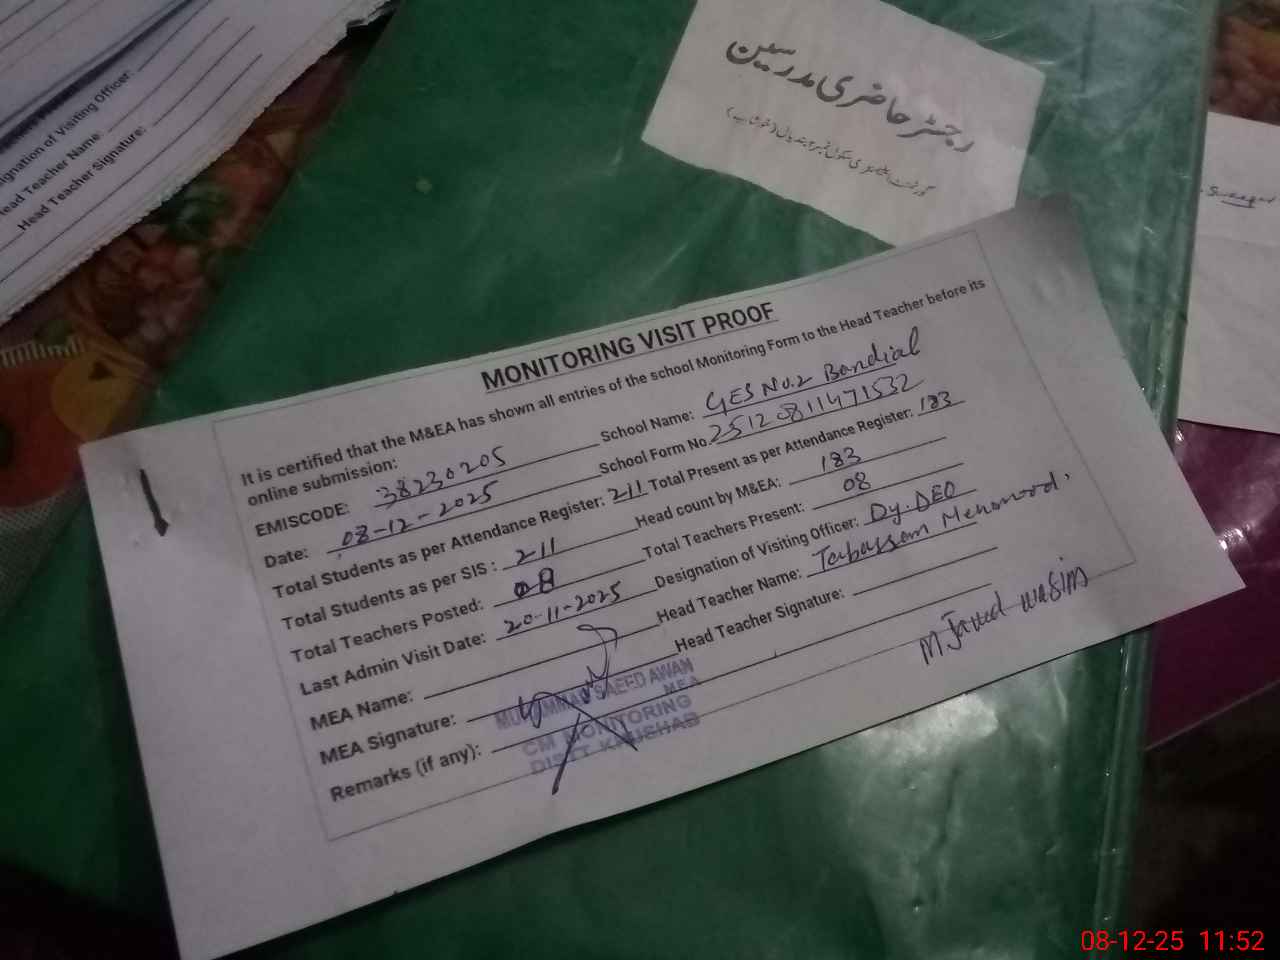 ignation of Visiting Officer:
ead Teacher Name:
Head Teacher Signature:
رجسٹر حاضری مدرسین
MONITORING VISIT PROOF
It is certified that the M&EA has shown all entries of the school Monitoring Form to the Head Teacher before its
online submission:
EMISCODE: 38230205 School Name: GES No.2 Bandial
Date: 08-12-2025 School Form No. 25120811471532
Total Students as per Attendance Register: 211 Total Present as per Attendance Register: 183
Total Students as per SIS : 211 Head count by M&EA: 183
Total Teachers Posted: 08 Total Teachers Present: 08
Last Admin Visit Date: 20-11-2025 Designation of Visiting Officer: Dy. DEO
MEA Name: Head Teacher Name: Tabassam Mehmood.
MEA Signature: Head Teacher Signature:
Remarks (if any):
MUHAMMAD SAEED AWAN
MEA
CM MONITORING
DISTT KHUSHAB
M. Javed wasim
08-12-25 11:52